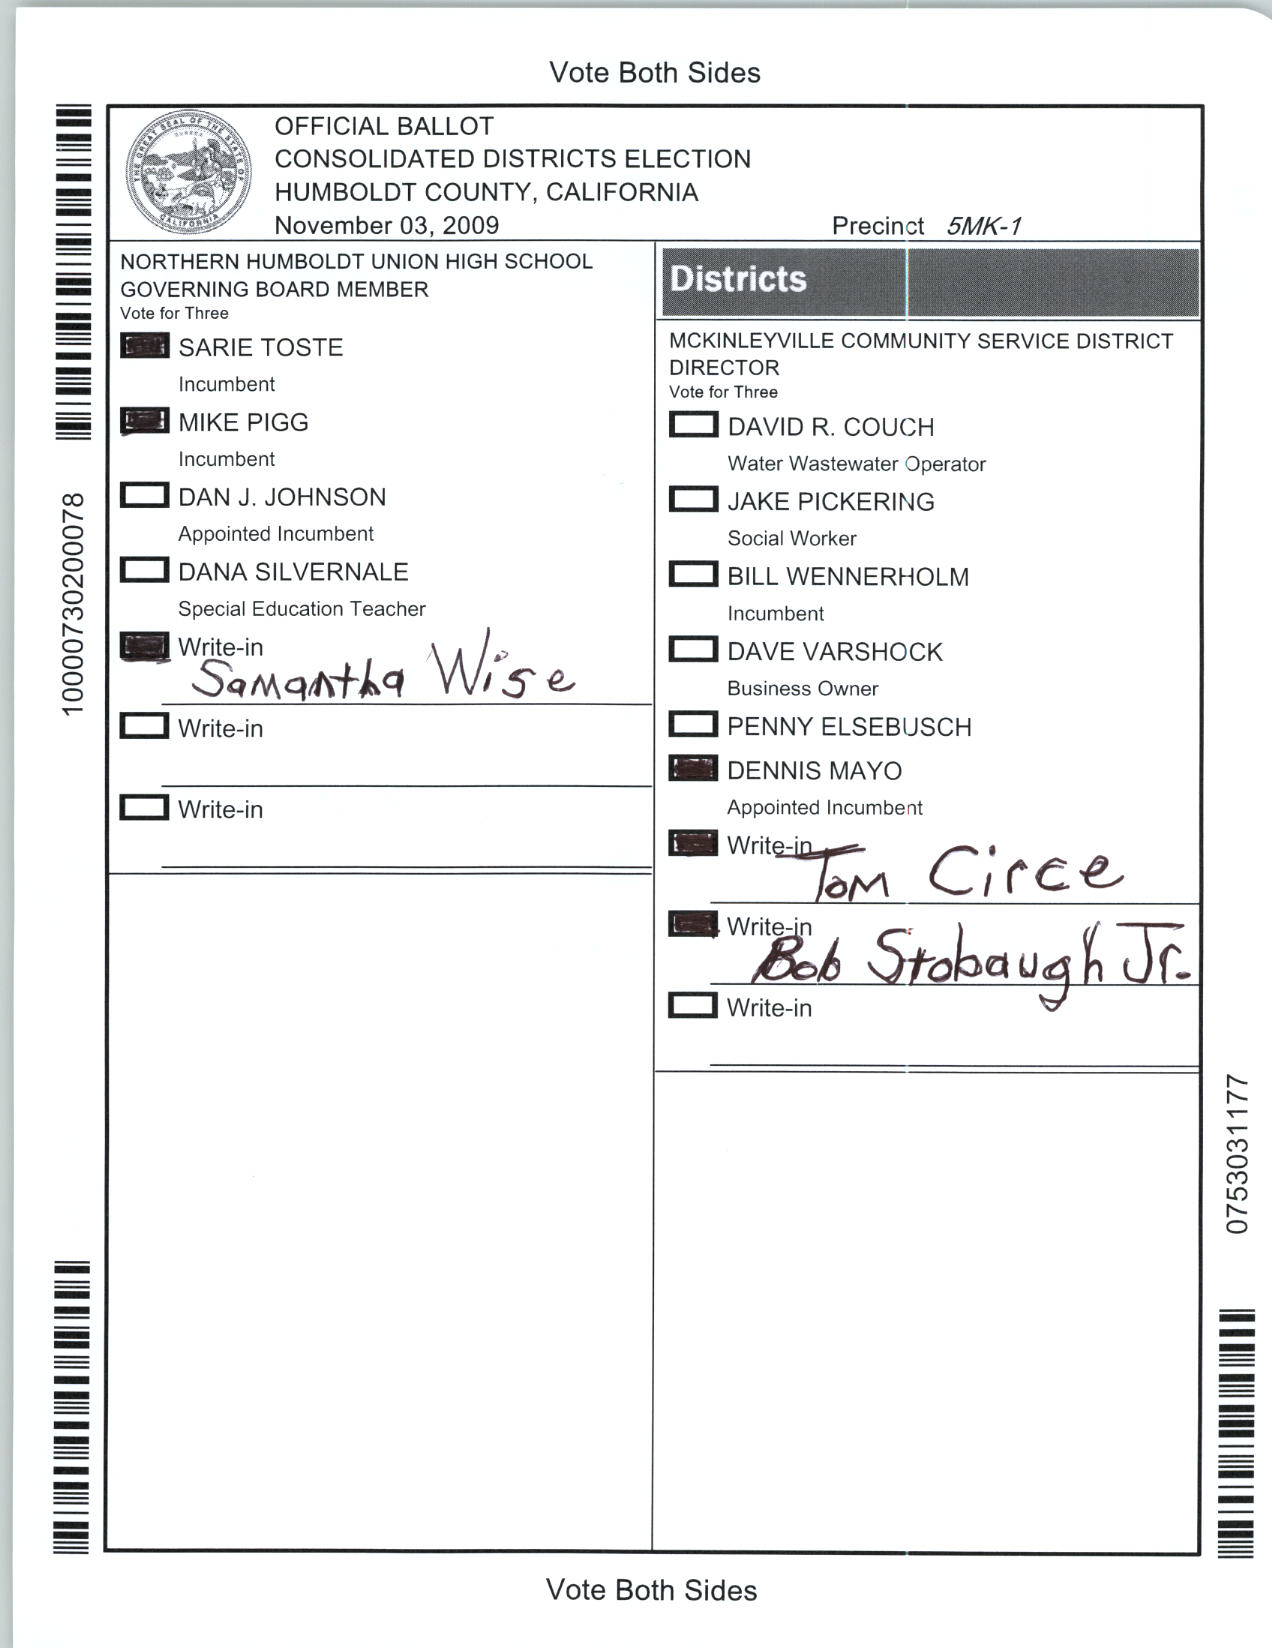 Vote Both Sides
OFFICIAL BALLOT
CONSOLIDATED DISTRICTS ELECTION
HUMBOLDT COUNTY, CALIFORNIA
November 03, 2009 Precinct 5MK-1
THE GREAT SEAL OF THE STATE OF CALIFORNIA
EUREKA
1000730200078
NORTHERN HUMBOLDT UNION HIGH SCHOOL
GOVERNING BOARD MEMBER
Vote for Three
SARIE TOSTE
Incumbent
MIKE PIGG
Incumbent
DAN J. JOHNSON
Appointed Incumbent
DANA SILVERNALE
Special Education Teacher
Write-in
Samantha Wise
Write-in
Write-in
Districts
MCKINLEYVILLE COMMUNITY SERVICE DISTRICT
DIRECTOR
Vote for Three
DAVID R. COUCH
Water Wastewater Operator
JAKE PICKERING
Social Worker
BILL WENNERHOLM
Incumbent
DAVE VARSHOCK
Business Owner
PENNY ELSEBUSCH
DENNIS MAYO
Appointed Incumbent
Write-in
Tom Circe
Write-in
Bob Stobaugh Jr.
Write-in
0753031177
Vote Both Sides